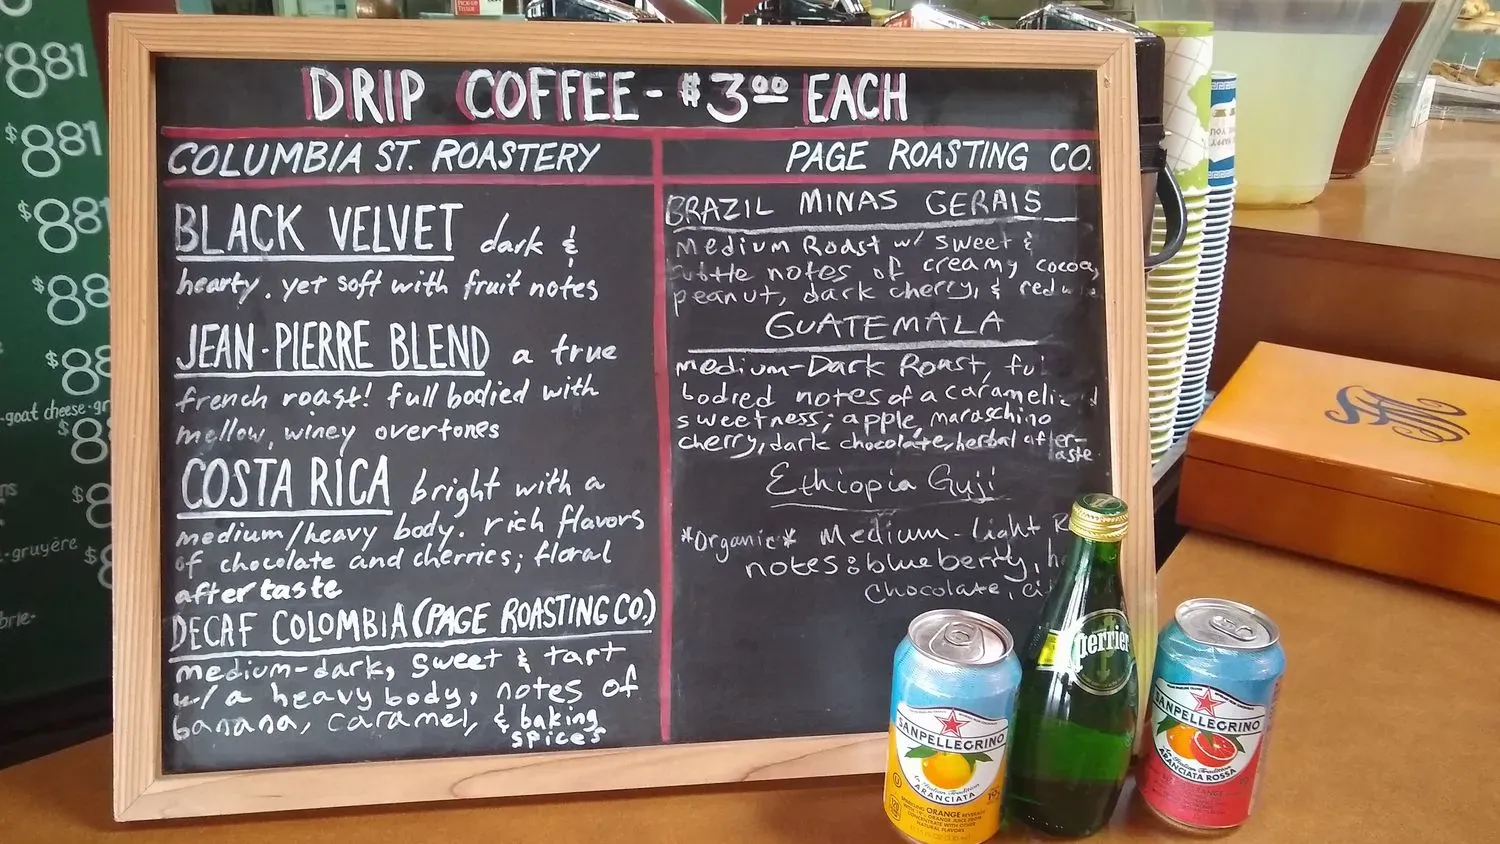 DRIP COFFEE - $3.00 EACH
COLUMBIA ST. ROASTERY
BLACK VELVET dark &
hearty. yet soft with fruit notes
JEAN-PIERRE BLEND a true
french roast! full bodied with
mellow, winey overtones
COSTA RICA bright with a
medium/heavy body. rich flavors
of chocolate and cherries; floral
aftertaste
DECAF COLOMBIA (PAGE ROASTING CO.)
medium-dark, sweet & tart
w/ a heavy body, notes of
banana, caramel, & baking
spices
PAGE ROASTING CO.
BRAZIL MINAS GERAIS
medium Roast w/ sweet &
subtle notes of creamy cocoa,
peanut, dark cherry, & red
GUATEMALA
medium-Dark Roast,
bodied notes of a
sweetness; apple, maraschino
cherry, dark chocolate, herbal after-
taste
Ethiopia Guji
*Organic* Medium-Light
notes: blueberry,
chocolate,
$881
$881
$881
$88
$88
goat cheese
$8
gruyère
brie
perrier
SANPELLEGRINO
ARANCIATA
ORANGE
SANPELLEGRINO
ARANCIATA ROSSA